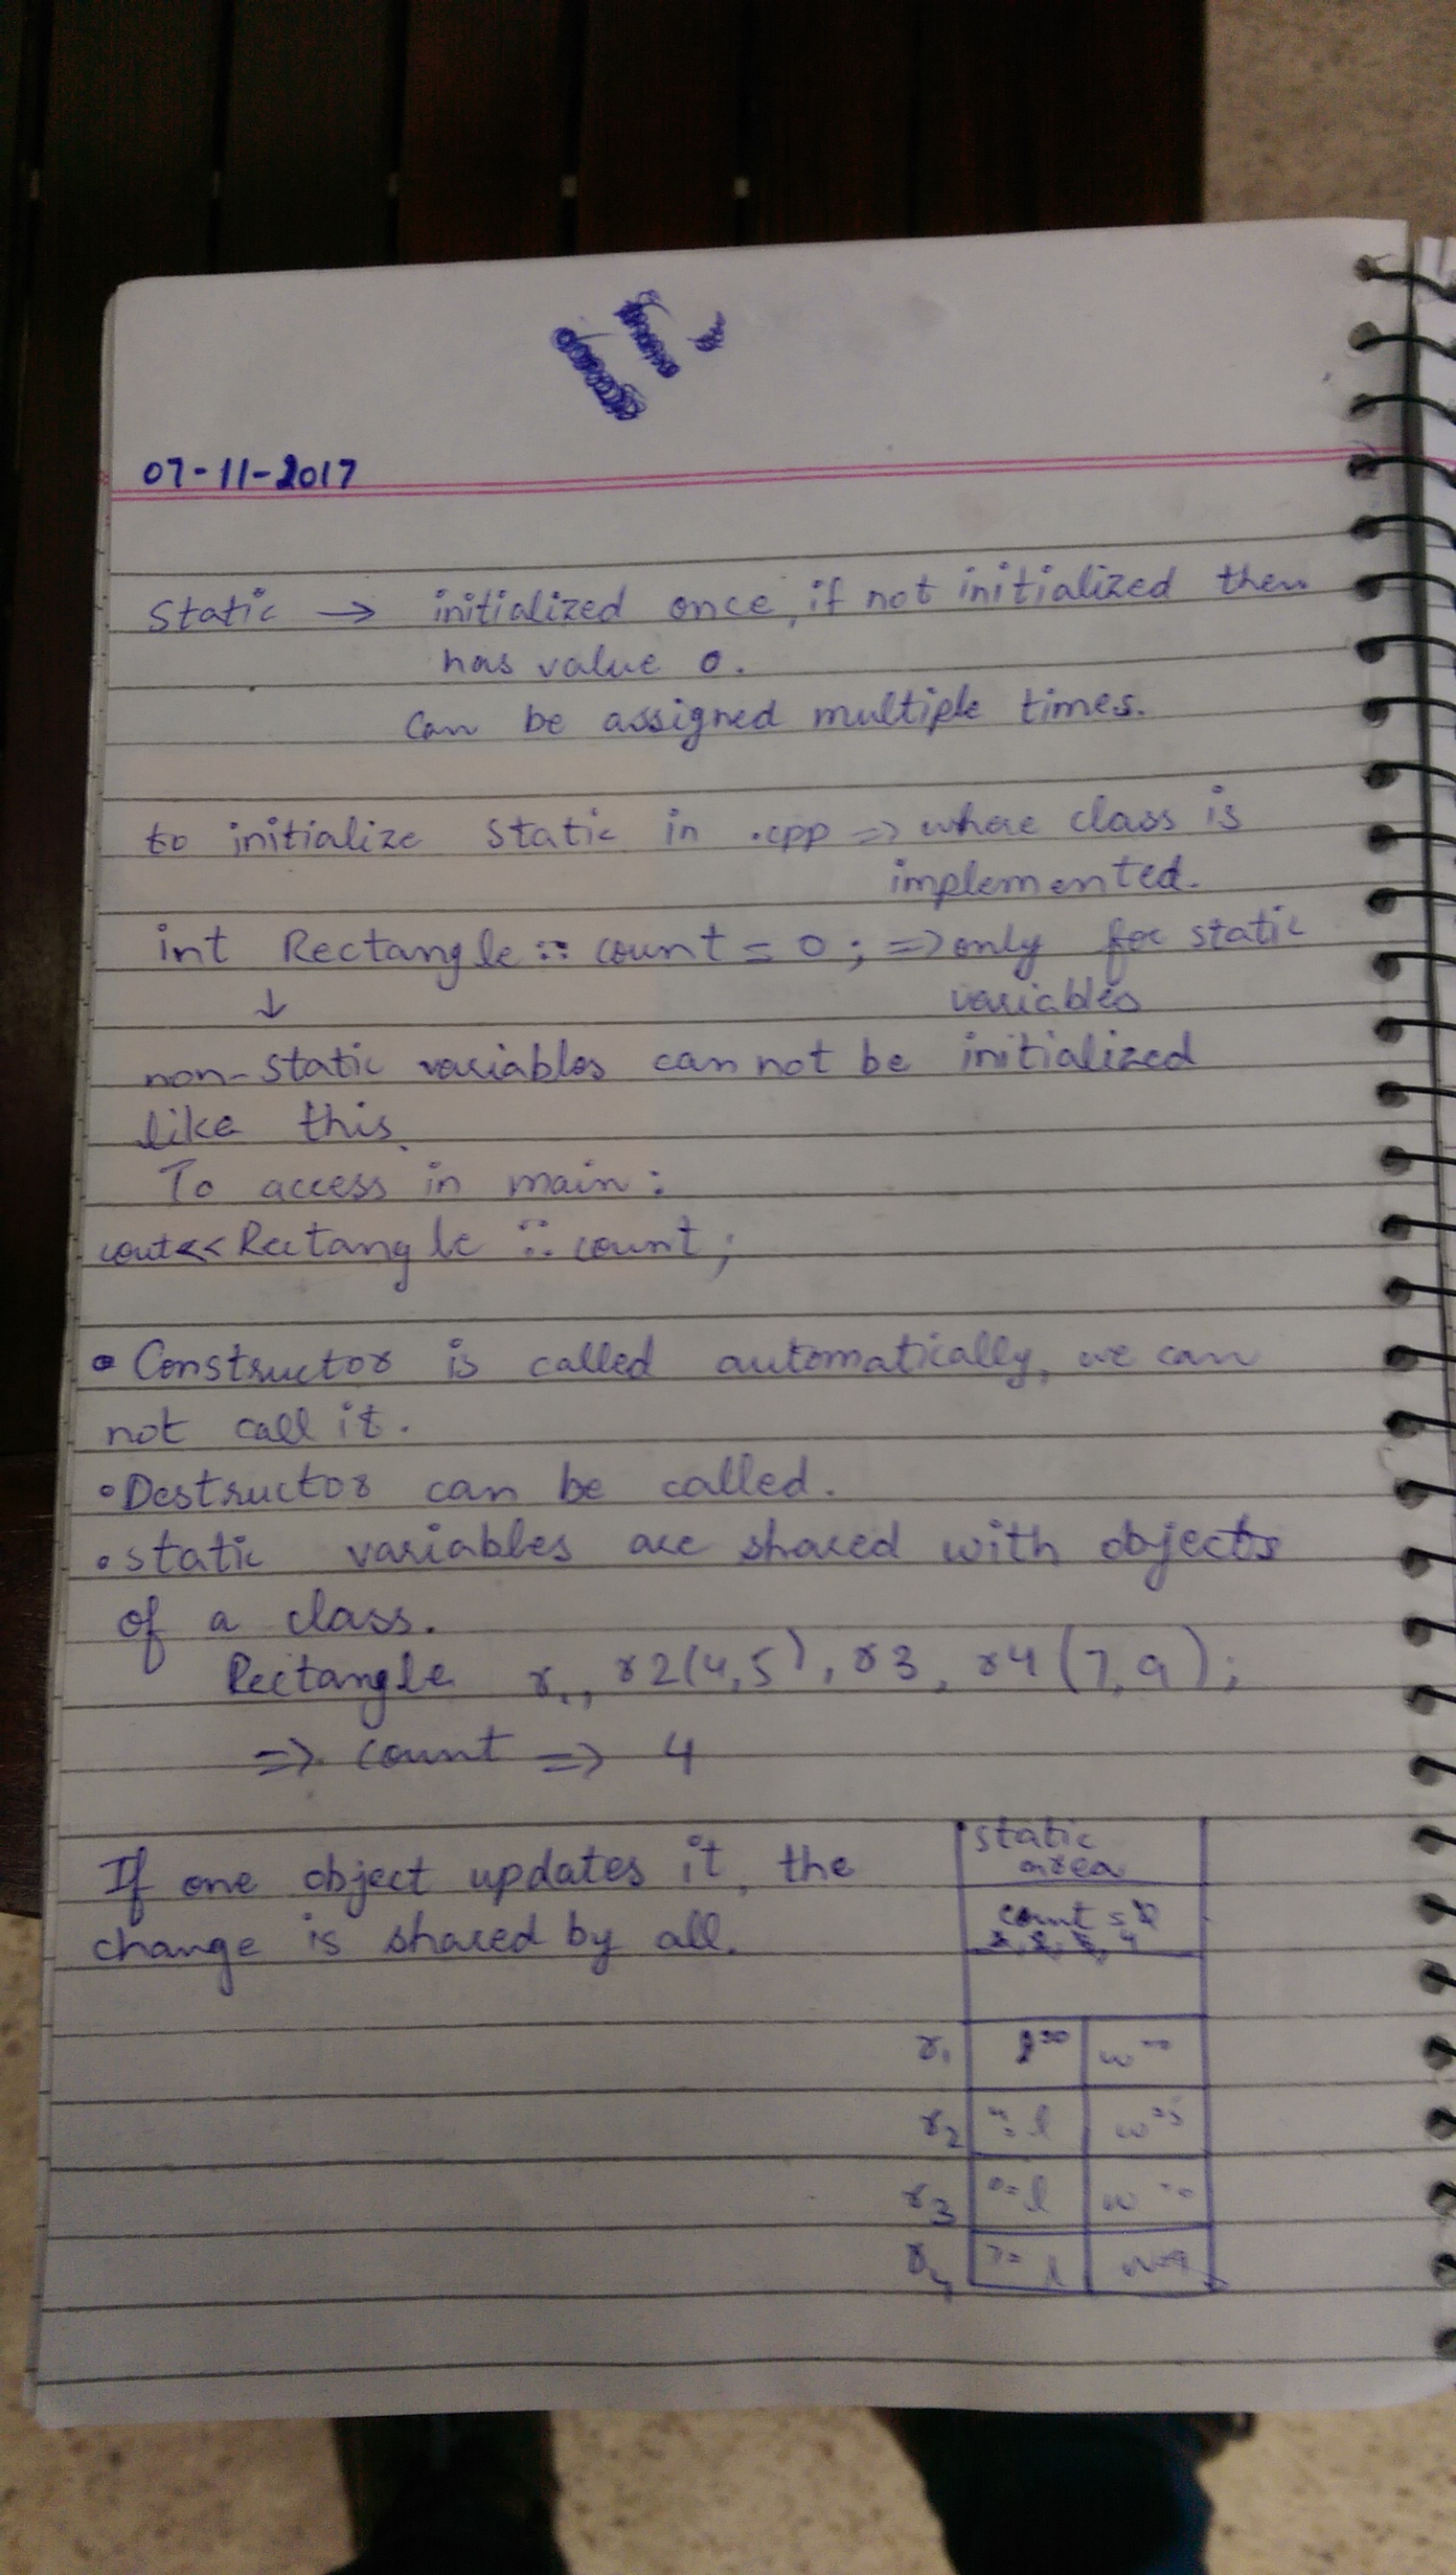 07-11-2017
Static → initialized once, if not initialized then
has value 0.
Can be assigned multiple times.
to initialize static in .cpp => where class is
implemented.
int Rectangle :: count = 0 ; => only for static
variables
↓
non-static variables can not be initialized
like this.
To access in main :
cout<< Rectangle :: count ;
• Constructor is called automatically, we can
not call it.
• Destructor can be called.
• static variables are shared with objects
of a class.
Rectangle r1, r2(4,5), r3, r4(7,9);
=> count => 4
If one object updates it, the
change is shared by all.
static
area
count =
4
r1 w
r2 l w=5
r3 0=l w
r4 7=l w=9